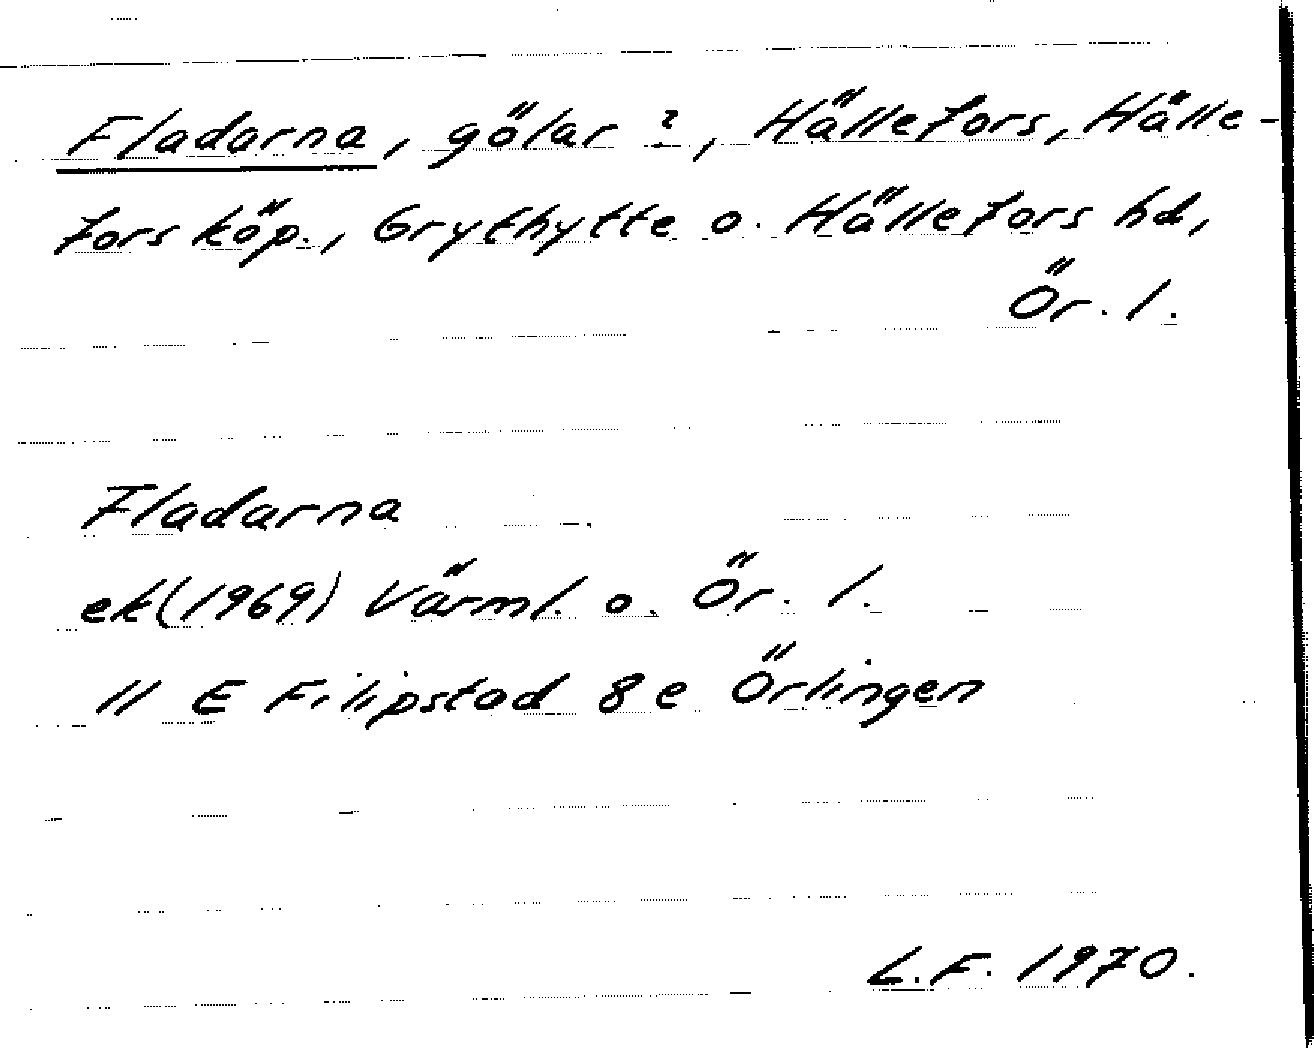 Fladarna, gölar ?, Hällefors, Hälle-
fors köp., Grythytte o. Hällefors hd,
Ör. l.
Fladarna
ek(1969) Värml. o. Ör. l.
11 E Filipstad 8 e Örlingen
L.F. 1970.